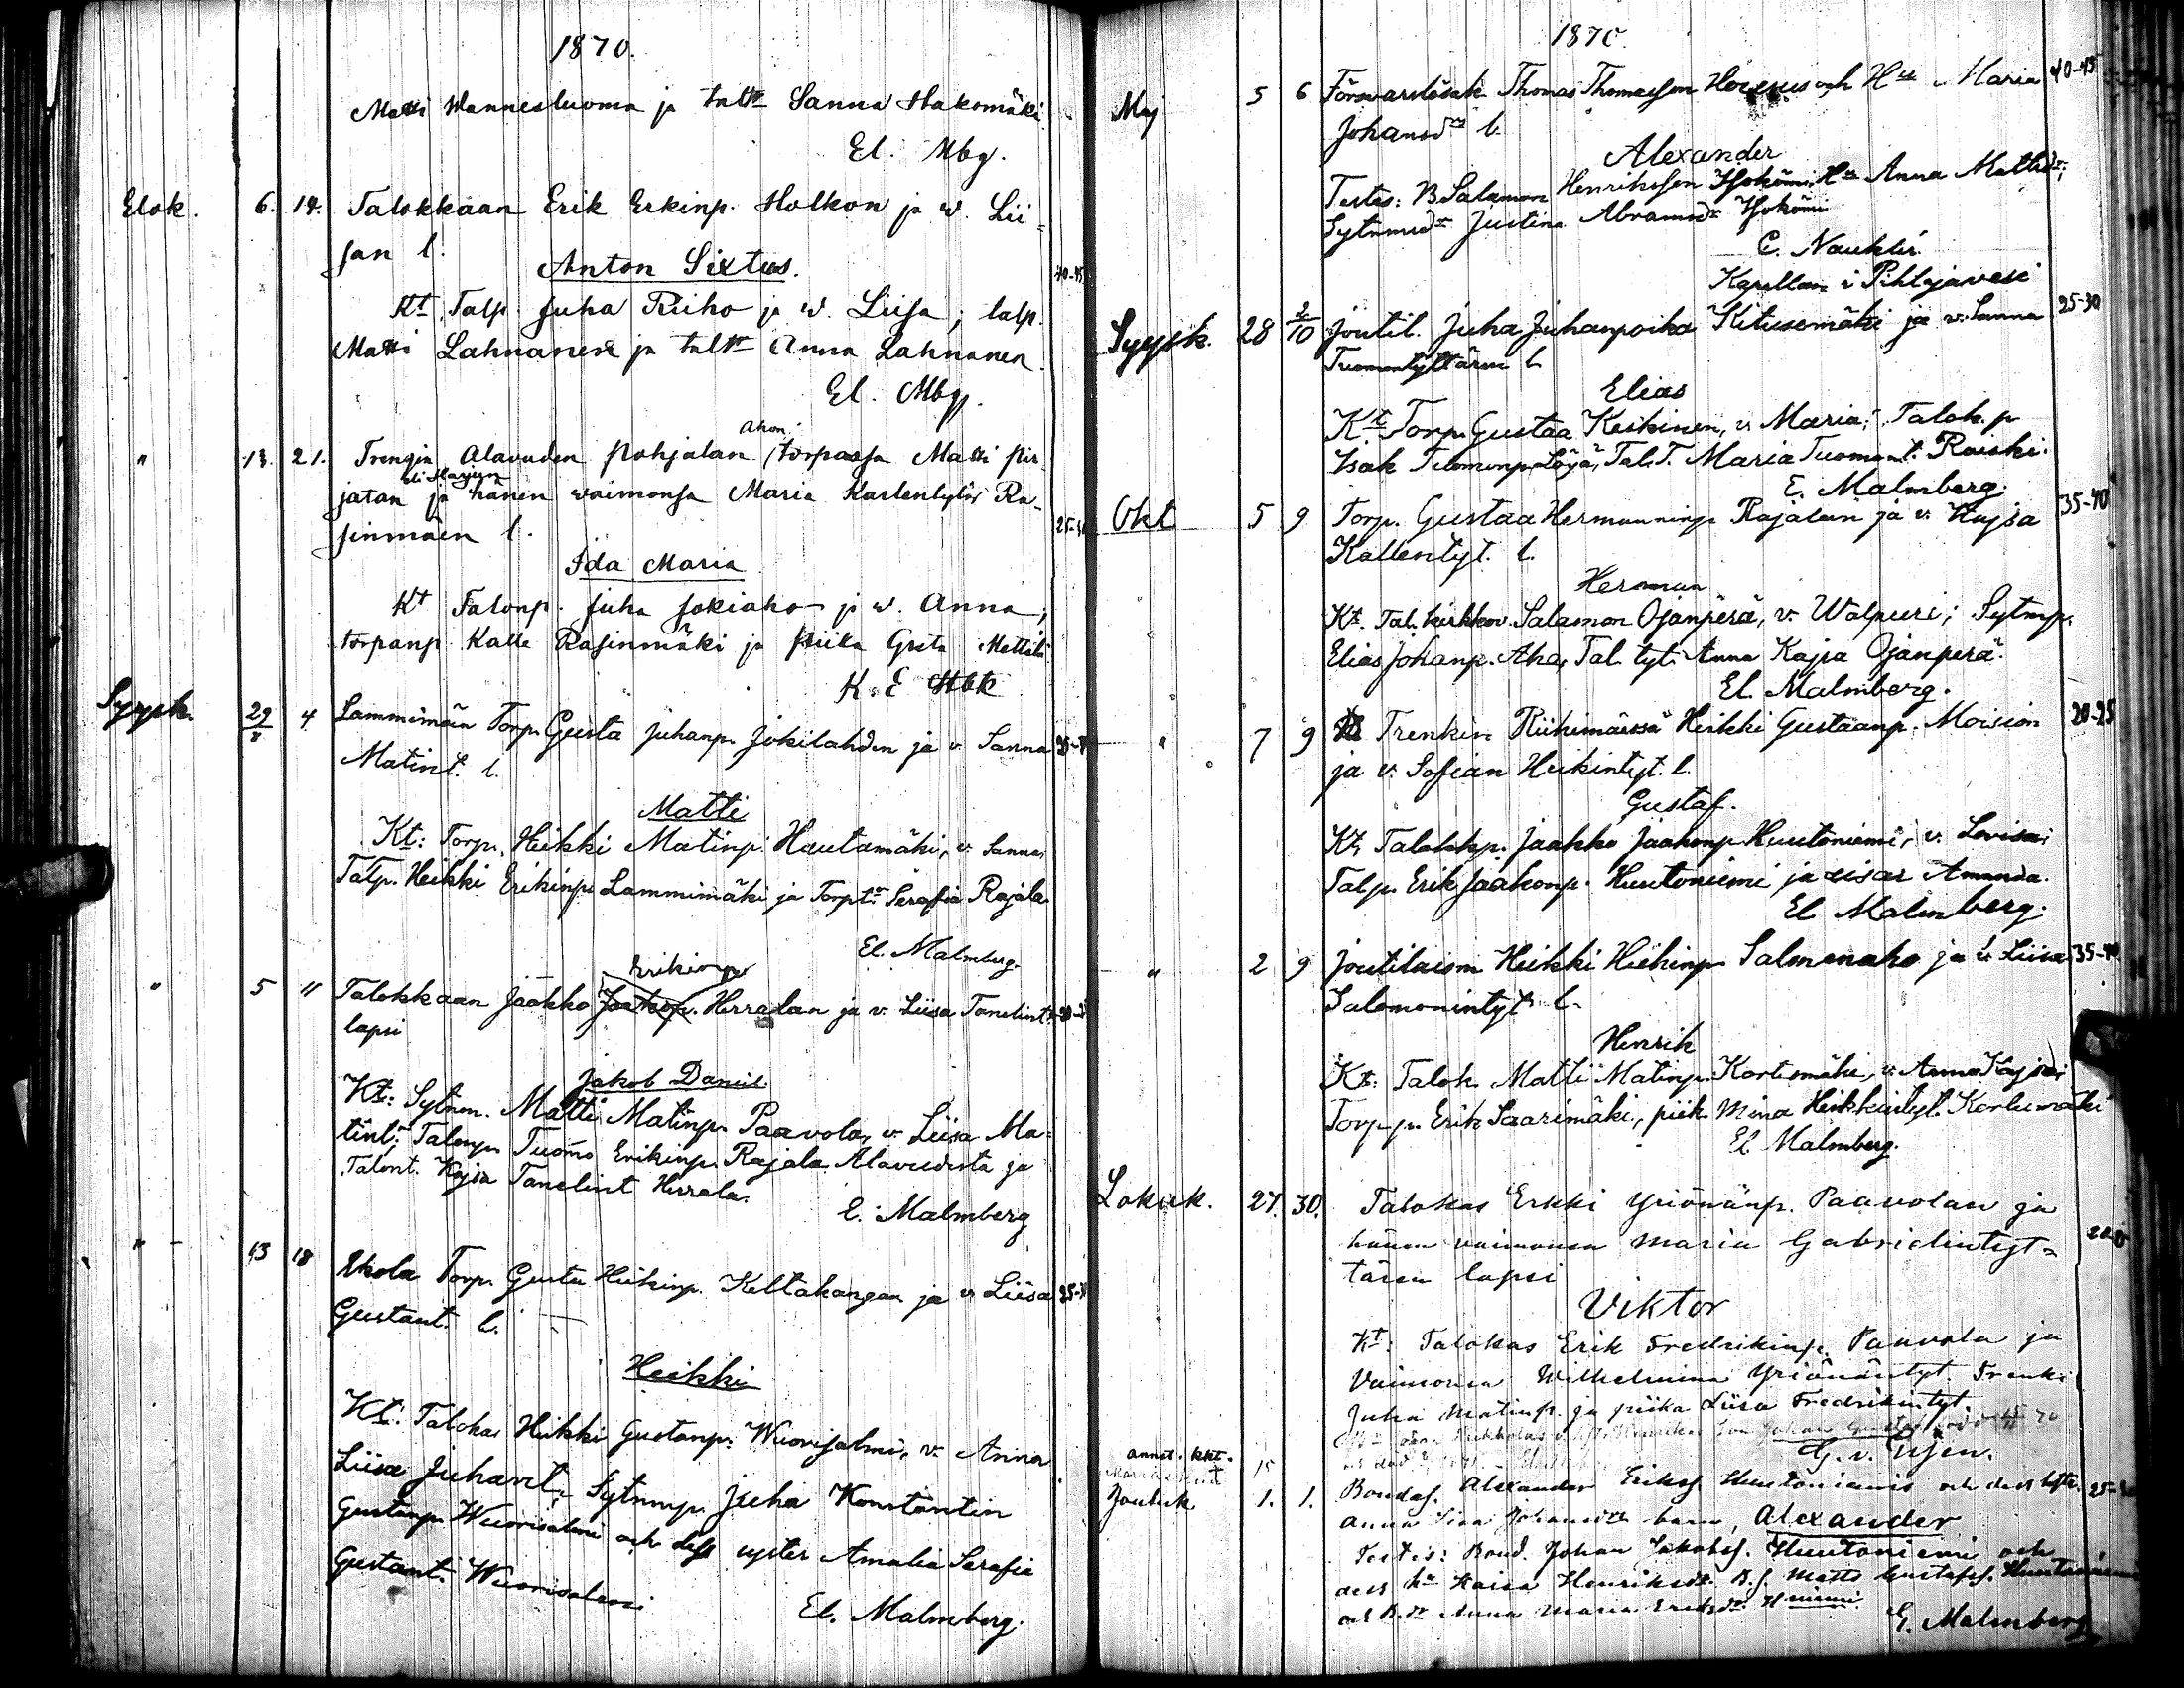 1870.
Matti Wannesluoma ja taltr Sanna Hakomäki
El. Mbg.
Elok. 6. 14. Talokkaan Erik Erkinp. Holkon ja w. Lii=
san l. 40-45
Anton Sixtus.
Kt Talp. Juha Riiho ja w. Liisa; talp.
Matti Lahnanen ja taltr Anna Lahnanen
El. Mbg.
" 13. 21. Trengin Alavuden Pohjalan Ahon torpassa Matti Pir
jatan eli Marjun ja hänen waimonsa Maria Karlentytär Ra-
sinmäen l.
Ida Maria
Kt Talonp. Juha Jokiaho ja w. Anna;
torpanp Kalle Rasinmäki ja piika Greta Mettälä
K. E
Syysk. 29/8 4 Lammimäen Torp. Gusta Juhanp. Jokilahden ja v. Sanna
Matint. l.
Matti
Kt: Torp. Heikki Matinp. Hautamäki, v. Sanna,
Talp. Heikki Erikinp. Lammimäki ja Torptr Serafia Rajala
El. Malmberg.
" 5 11 Talokkaan Jaakko Erikinp Herralan ja v. Liisa Tanelint.
lapsi
Jakob Daniel
Kt: Sytnm. Matti Matinp. Paavola, v. Liisa Ma=
tint; Talonp. Tuomo Erikinp. Rajala Alavudesta ja
Talont. Kajsa Tanelint Herrala.
E. Malmberg
" 13 18 Ikola Torp. Gusta Heikinp. Keltakangan ja v. Liisa
Gustant. l.
Heikki
Kt: Talokas Heikki Gustanp. Wuorisalmi, v. Anna
Liisa Juhant; Sytnmp. Juha Konstantin
Gustanp. Wuorisalmi och dess syster Amalia Serafia
Gustant. Wuorisalmi
El. Malmberg.
1870
Maj 5 6 Thomas Thomasson och Hu Maria 40-45
Johansdr b.
Alexander
Testes: B Salamon Henriksson Hu Anna Mattsdr;
Justina Abramsdr
C. Nauklér
Kapellan i Pihlajavesi
Syysk. 28 2/10 Joutil. Juha Juhanpoika Kitusemäki ja v. Sanna 25-30
Tuomontyttären l.
Elias
Kt: Torp. Gustaa Keskinen, v. Maria; Talok. p
Isak Tuomonp. Löyä, Tal. T. Maria Tuomont. Raiski.
E. Malmberg.
Okt 5 9 Torp. Gustaa Hermanninp Rajalan ja v. Kajsa 35-40
Kallentyt. l.
Herman
Kt. Tal. kirkkov. Salamon Ojanperä, v. Walpuri; Sytmp.
Elias Johanp. Aha, Tal. tyt. Anna Kajsa Ojanperä.
El. Malmberg.
" 7 9 Trenkin Riikimäessä Heikki Gustaanp. Moision 20-25
ja v. Sofian Heikintyt. l.
Gustaf.
Kt, Talokkp. Jaakko Jaakonp Huutoniemi, v. Lovisa;
Talp. Erik Jaakonp. Huutoniemi ja sisar Amanda.
El Malmberg.
" 2 9 Joutilaisen Heikki Heikinp Salmenaho ja v. Liisa 35-40
Salomonintyt l.
Henrik
Kt: Talok. Matti Matinp. Kortesmäki, v. Anna Kajsa;
Torp. p. Erik Saarimäki, piik. Mina Heikkintyt.
El Malmberg.
Lokuk. 27. 30. Talokas Erkki Yriönänp. Paavolan ja
hänen vaimonsa Maria Gabrielintyt=
tären lapsi
Viktor
Kt: Talokas Erik Fredrikinp. Paavola ja
Vaimonsa Wilhelmina Yriönäntyt. Trenki
Juha Matinp. ja piika Liisa Fredrikintyt.
annet. kkt. 15
Jouluk 1. 1. Bondes. Alexander Erikss. Huutoniemis och dess hstr.
Anna Lisa Johansdrs barn, Alexander
Testes: Bond. Johan Jakobss. Huutoniemi och
dess hu Kaisa Henriksdr. B.s. Matts Gustafss. Huutoniemi
och B.dr Anna Maria Eriksdr. Hniemi.
E. Malmberg